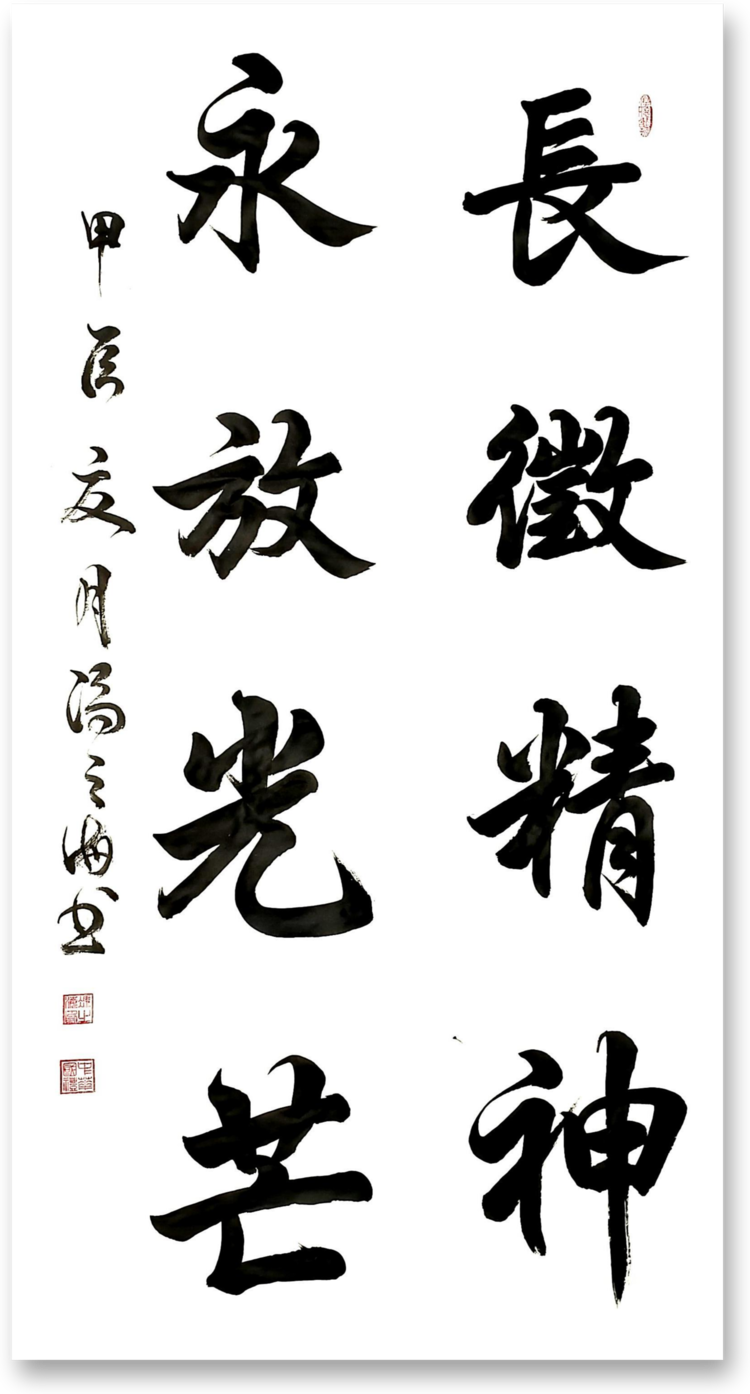 長徵精神
永放光芒
甲辰夏月冯之海书